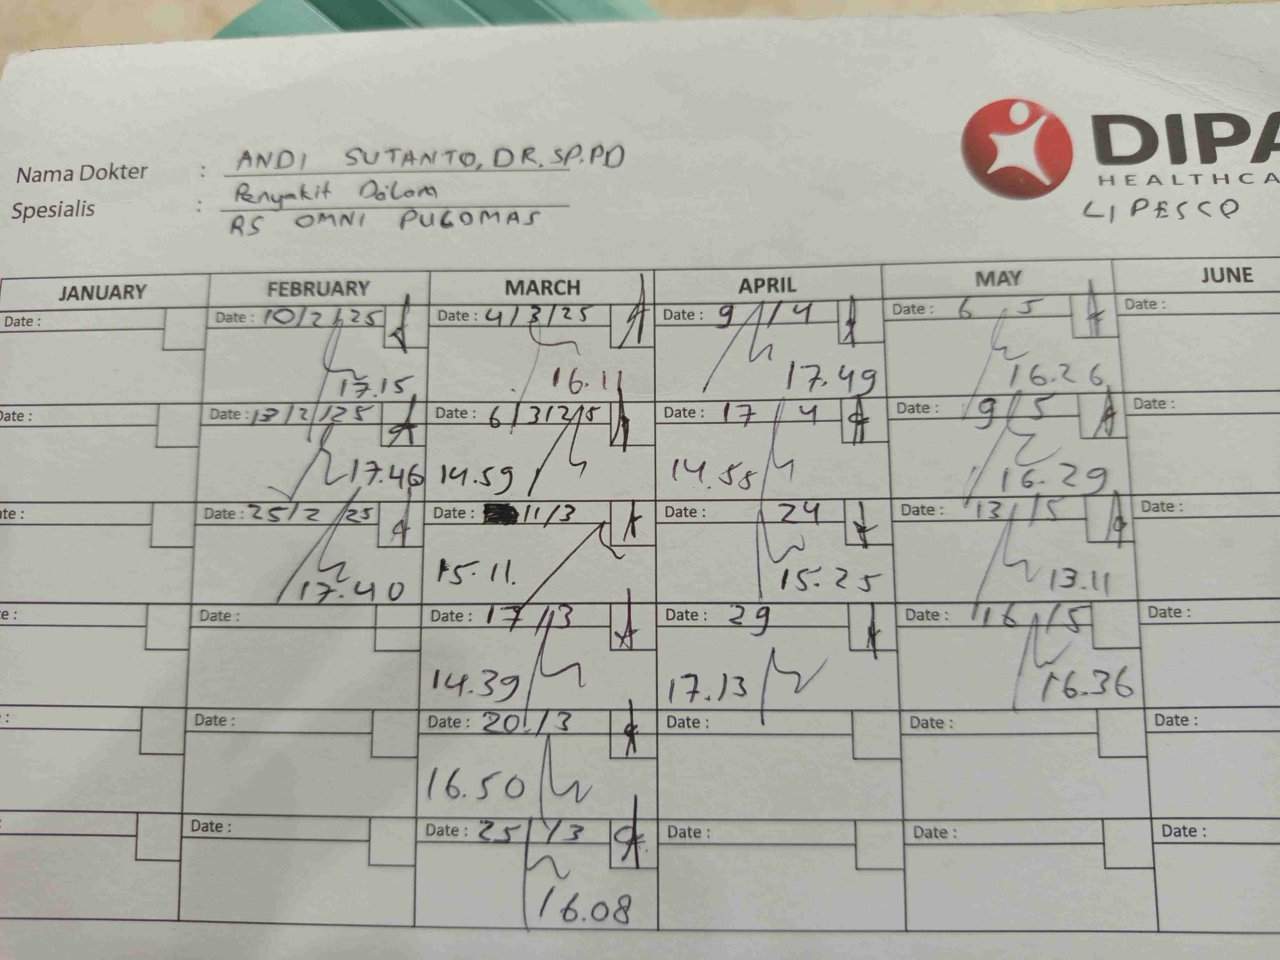 Nama Dokter : ANDI SUTANTO, DR. SP.PD
Spesialis : Penyakit Dalam
RS OMNI PULOMAS
DIPA
HEALTHCA
LIPESCO
JANUARY FEBRUARY MARCH APRIL MAY JUNE
Date : Date : 10/2/25 Date : 4/3/25 Date : 9/4 Date : 6 5 Date :
17.15 16.11 17.49 16.26
Date : Date : 13/2/25 Date : 6/3/25 Date : 17 4 Date : 9/5 Date :
17.46 14.59 14.58 16.29
ate : Date : 25/2/25 Date : 11/3 Date : 24 Date : 13/5 Date :
17.40 15.11. 15.25 13.11
e : Date : Date : 17/3 Date : 29 Date : 16/5 Date :
14.39 17.13 16.36
: Date : Date : 20/3 Date : Date : Date :
16.50
: Date : Date : 25/3 Date : Date : Date :
16.08